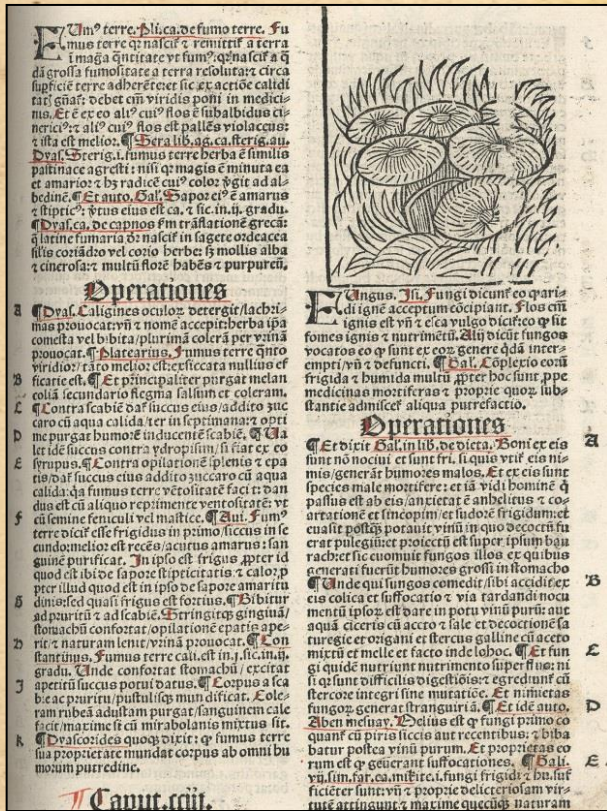 FUmꝰ terre. Pli. ca. de fumo terre. Fu
mus terre qꝛ nascit̃ ⁊ remittit̃ a terra
i maga q̃ntitate vt fumꝰ: qꝛ nascit̃ a q̃
dã grossa fumositate a terra resoluta: ⁊ circa
supficiẽ terre adherẽte: et sic ex actiõe calidi
debet eĩ viridis poni in medici-
nis. Et ẽ ex eo aliꝰ cuiꝰ flos ẽ subalbidus ci-
nericiꝰ: ⁊ aliꝰ cuiꝰ flos est pallẽs violaceus:
⁊ ista est melior. ¶ Sera lib. ag. ca. sterig. au.
Dyas. Sterig. i. fumus terre herba ẽ similis
pastinace agresti: nisi qꝛ magis ẽ minuta ea
et amarior: ⁊ hꝫ radicẽ cuiꝰ color ꝟgit ad al-
bedinẽ. ¶ Et auto. Gal. Sapor eiꝰ ẽ amarus
⁊ stipticꝰ: ꝟtus eius est ca. ⁊ sic. in. ij. gradu.
¶ Dyas. ca. de capnos ẽm trãslationẽ grecã:
q̃ latine fumaria dr̃ nascit̃ in sagete ordeacea
silis coriãdro vel corio herbe: sꝫ mollis alba
⁊ cinerosa: ⁊ multũ florẽ habẽs ⁊ purpureũ.
Operationes
A ¶ Dyas. Caligines oculoꝝ detergit/lachri-
mas prouocat: vñ ⁊ nomẽ accepit: herba ip̃a
comesta vel bibita/plurimã colerã per vrinã
prouocat. ¶ Platearius. Fumus terre q̃nto
viridior/tãto melior est: exsiccata nullius ef
B ficatie est. ¶ Et principaliter purgat melan
coliã secundario flegma salsum et coleram.
C ¶ Contra scabiẽ daf̃ succus eius/addito zuc
caro cũ aqua calida/ter in septimana: ⁊ opti
D me purgat humorẽ inducentẽ scabiẽ. ¶ Va
let idẽ succus contra ydropisim/si fiat ex eo
E syrupus. ¶ Contra opilationẽ splenis ⁊ epa
tis/daf̃ succus eius addito zuccaro cũ aqua
calida: q̃a fumus terre vẽtositatẽ facit: dan
dus est cũ aliquo reprimente ventositatẽ: vt
F cũ semine feniculi vel mastice. ¶ Aui. Fumꝰ
terre dicit̃ esse frigidus in primo/siccus in se
cundo: melior est recẽs/acutus amarus: san
guinẽ purificat. In ipso est frigus ꝓpter id
quod est ibi de sapore stipticitatis ⁊ calor ꝓ
pter illud quod est in ipso de sapore amaritu
G dinis: sed quasi frigus est fortius. ¶ Bibitur
ad pruritũ ⁊ ad scabiẽ. Stringitqꝫ gingiuã/
stomachũ confortat/opilationẽ epatis ape-
H rit ⁊ naturam lenit/vrinã prouocat. ¶ Con
stantinus. Fumus terre cali. est in. j. sic. in. ij.
gradu. Unde confortat stomachũ/excitat
J apetitũ succus potui datus. ¶ Corpus a sca
bie ac pruritu/pustulisqꝫ mundificat. Cole-
ram rubeã adustam purgat/sanguinem cale
facit/maxime st̃ cũ mirabolanis mixtus sit.
K ¶ Dyascorides quoqꝫ dixit: qꝫ fumus terre
sua proprietate mundat corpus ab omni hu
morum putredine.
¶ Caput. cciij.
FUngus. Isi. Fungi dicunt̃ eo qꝫ ari-
di ignẽ acceptum cõcipiant. Flos eñ
ignis est vñ ⁊ esca vulgo dicit̃: eo qꝫ sit
fomes ignis ⁊ nutrimẽtũ. Alij dicũt fungos
vocatos eo qꝫ sunt ex eoꝝ genere qdã inter-
empti/vñ ⁊ defuncti. ¶ Gal. Cõplexio eorũ
frigida ⁊ humida multũ ꝓpter hoc sunt ꝓpe
medicinas mortiferas ⁊ proprie quoꝝ sub-
stantie admiscet̃ aliqua putrefactio.
Operationes
A ¶ Et dixit Gal. in lib. de dieta. Boni ex eis
sunt nõ nociui et sunt fri. si quis vtit̃ eis ni-
mis/generãt humores malos. Et ex eis sunt
species male mortifere: et iã vidi hominẽ q̃
passus est ab eis/anxietatẽ anhelitus ⁊ co-
artationẽ et sincopim/et sudorẽ frigidum: et
euasit postq̃ potauit vinũ in quo decoctũ fu
erat pulegiũ: et proiectũ est super ipsum bau
rach: et sic euomuit fungos illos ex quibus
generati fuerũt humores grossi in stomacho
B ¶ Unde qui fungos comedit/sibi accidit ex
eis colica et suffocatio ⁊ via tardandi nocu
mentũ ipsoꝝ est dare in potu vinũ purũ: aut
aquã ciceris cũ aceto ⁊ sale et decoctionẽ sa
turegie et origani et stercus galline cũ aceto
C mixtũ et melle et facto inde lohoc. ¶ Et fun
gi quidẽ nutriunt nutrimento superfluo: ni
si qꝛ sunt difficilis digestiõis: ⁊ egrediunt̃ cũ
stercore integri sine mutatiõe. Et nimietas
D fungoꝝ generat stranguiriã. ¶ Et idẽ auto.
Aben mesuay. Melius est qꝫ fungi primo co
quant̃ cũ piris siccis aut recentibus: ⁊ biba
batur postea vinũ purum. Et proprietas eo
E rum est qꝫ generãt suffocationes. ¶ Gali.
vij. sim. far. ca. mikite. i. fungi. frigidi ⁊ hu. suf
ficiẽter sunt: vñ ⁊ proprie delicteriosam vir-
tutẽ attingunt ⁊ maxime quecũqꝫ naturam